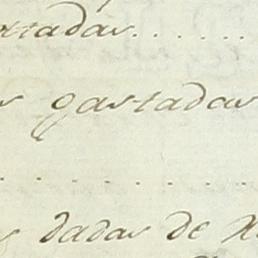 tadas......
gastadas
......
dadas de